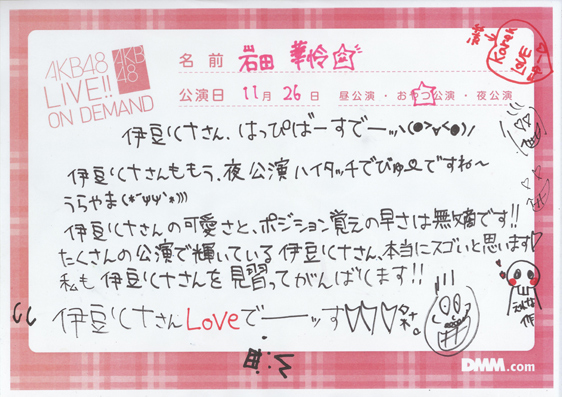 AKB48
LIVE!!
ON DEMAND
AKB
48
名前 岩田 華怜☆
公演日 11月26日 昼公演・おやつ公演・夜公演
Karen
LOVE
伊豆リナさん、はっぴばーすでーッ\(●>∀<●)/
伊豆リナさんももう、夜公演ハイタッチでびゅーですね〜
うらやま(*´ψψ`*)))
伊豆リナさんの可愛さと、ポジション覚えの早さは無敵です!!
たくさんの公演で輝いている伊豆リナさん、本当にスゴいと思います♡
私も伊豆リナさんを見習ってがんばります!!
伊豆リナさんLoveでーーッす♡♡♡
作
DMM.com